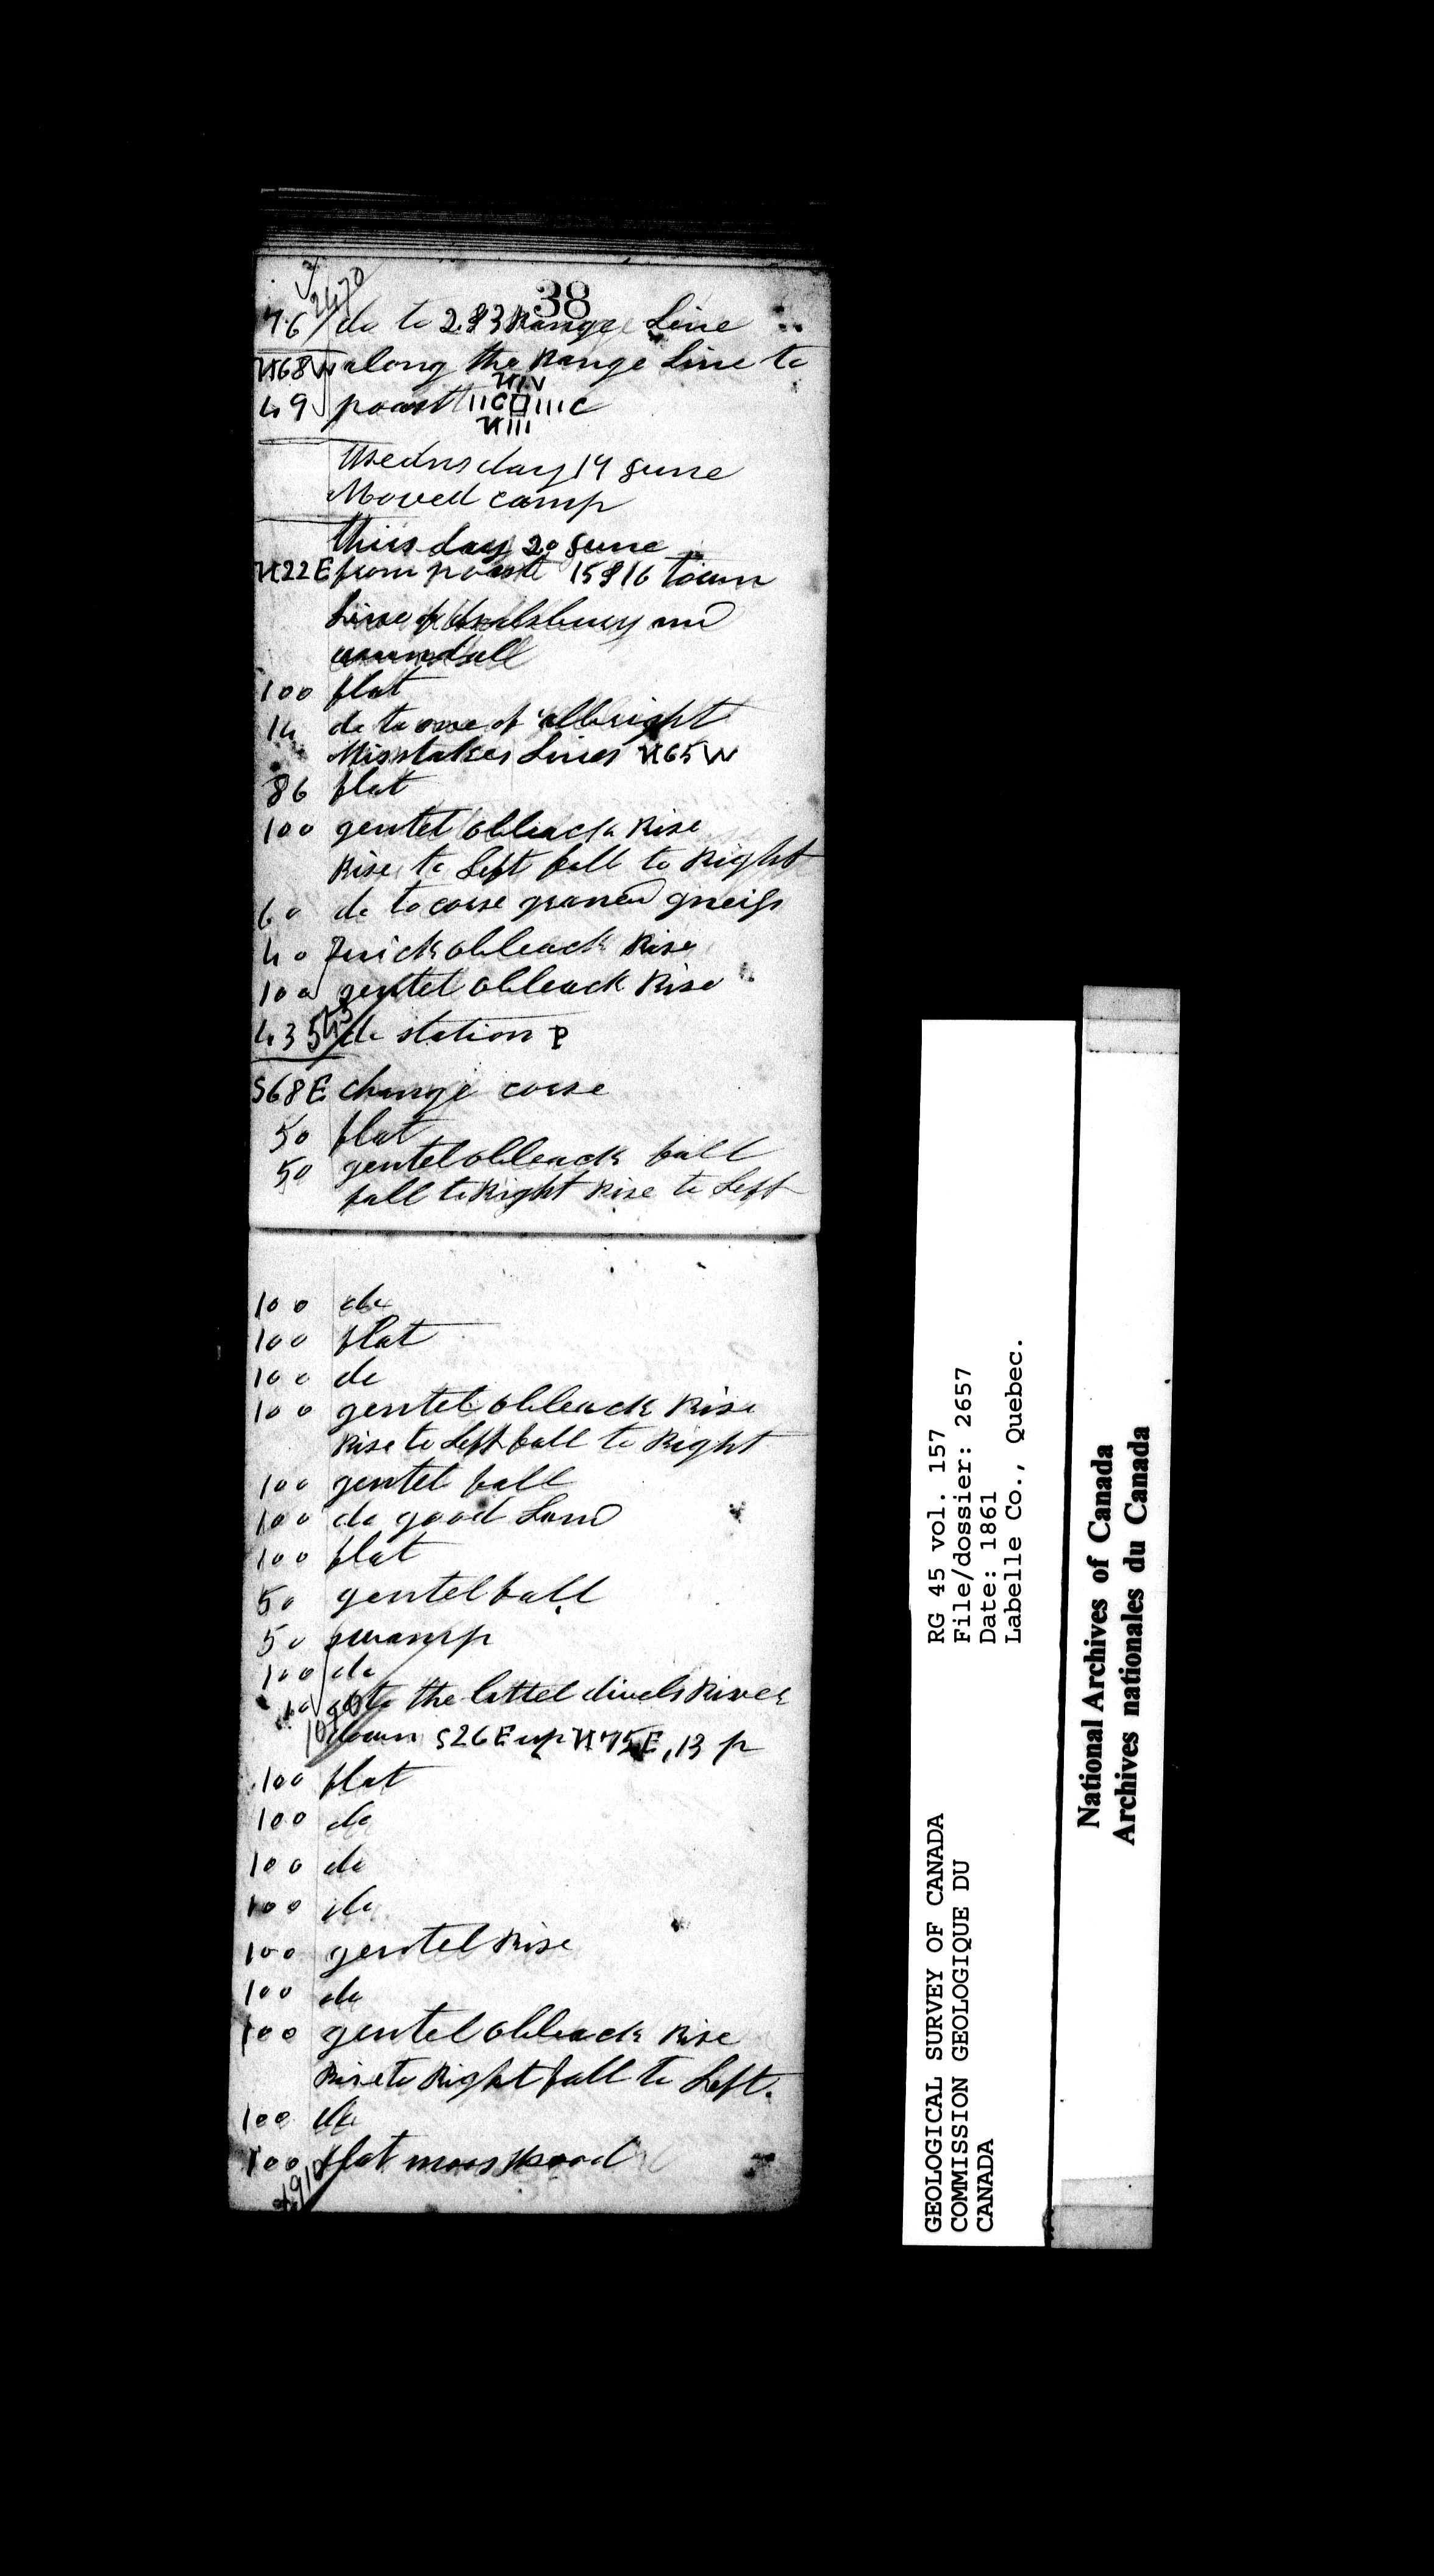 38
2470
76 do to 2 & 3 Range Line
N68W along the Range Line to
NIV
49 poast IIC□IIIC
NIII
Wednsday 19 June
Moved camp
thirs day 20 June
N22E from poast 15 & 16 town
Line of Desalsbeury and
aurundall
100 flat
14 do to one of allbright
Misstakes Lines N65W
86 flat
100 gentel obleack Rise
Rise to Left fall to Right
60 do to corse graned gneiss
40 Quick obleack Rise
100 gentel obleack Rise
43 543 do station P
S68E change corse
50 flat
50 gentel obleack fall
fall to Right Rise to Left
100 do
100 flat
100 do
100 gentel obleack Rise
Rise to Left fall to Right
100 gentel fall
100 do good Land
100 flat
50 gentel fall
50 swamp
100 do
10 do to the littel divels River
1010 down S26E up N75E, 13 p
100 flat
100 do
100 do
100 do
100 gentel Rise
100 do
100 gentel obleack Rise
Rise to Right fall to Left.
100 do
100 flat moss
1910
GEOLOGICAL SURVEY OF CANADA
COMMISSION GEOLOGIQUE DU
CANADA
RG 45 vol. 157
File/dossier: 2657
Date: 1861
Labelle Co., Quebec.
National Archives of Canada
Archives nationales du Canada